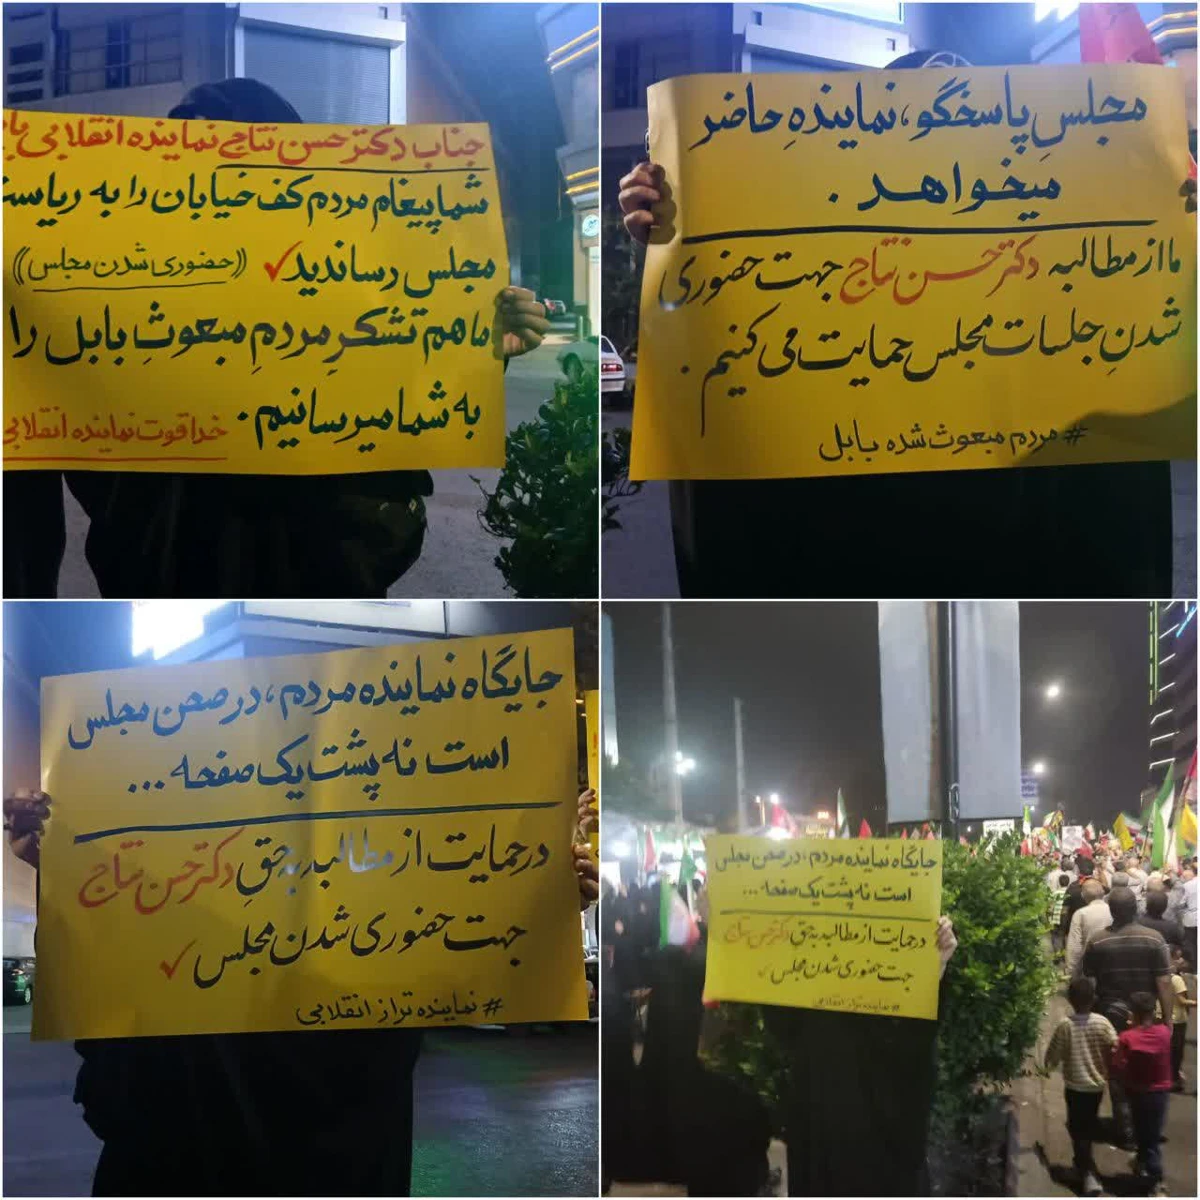 جناب دکتر حسن نتاج نماینده انقلابی
شما پیغام مردم کف خیابان را به ریاست
مجلس رساندید✓ ((حضوری شدن مجلس))
ما هم تشکرِ مردمِ مبعوثِ بابل را
به شما میرسانیم.
خدا قوت نماینده انقلابی
مجلسِ پاسخگو، نماینده‌ِ حاضر
میخواهد.
ما از مطالبه دکتر حسن نتاج جهت حضوری
شدنِ جلسات مجلس حمایت می کنیم.
#مردم مبعوث شده بابل
جایگاه نماینده مردم، در صحن مجلس
است نه پشت یک صفحه...
در حمایت از مطالبه به حقِ دکتر حسن نتاج
جهت حضوری شدن مجلس ✓
#نماینده تراز انقلابی
جایگاه نماینده مردم، در صحن مجلس
است نه پشت یک صفحه...
در حمایت از مطالبه به حق دکتر حسن نتاج
جهت حضوری شدن مجلس ✓
#نماینده تراز انقلابی